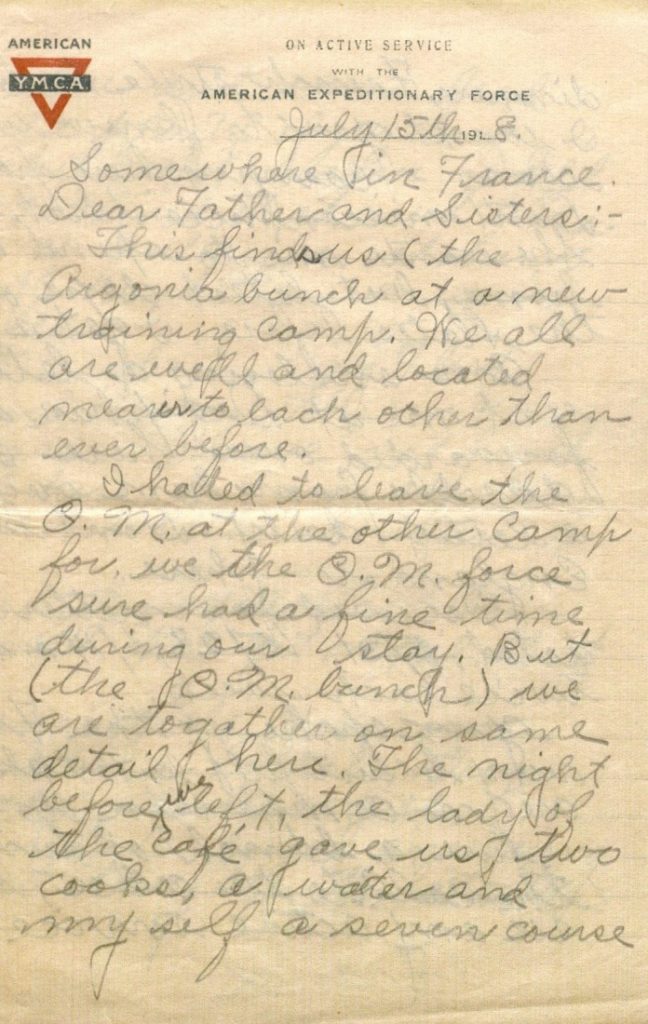 AMERICAN
Y.M.C.A
ON ACTIVE SERVICE
WITH THE
AMERICAN EXPEDITIONARY FORCE
July 15th 1918.
Somewhere in France.
Dear Father and Sisters:-
This finds us (the
Argonia bunch at a new
training camp. We all
are well and located
nearer to each other than
ever before.
I hated to leave the
Q. M. at the other Camp
for, we the Q. M. force
sure had a fine time
during our stay. But
(the Q. M. bunch) we
are togather on same
detail here. The night
before we left, the lady of
the Café gave us two
cooks, a waiter and
my self a seven course